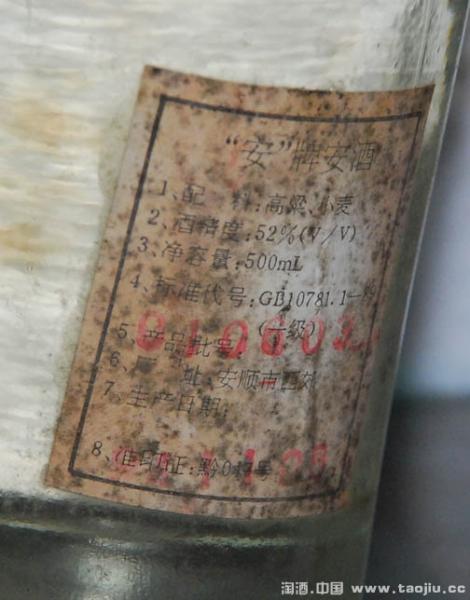 “安”牌安酒
1、配 料:高粱、小麦
2、酒精度:52%(V/V)
3、净容量:500mL
4、标准代号:GB10781.1—
(一级)
5、产品批号:
6、厂 址:安顺市西郊
7、生产日期:
8、准印证:黔0 号
淘酒.中国 www.taojiu.cc